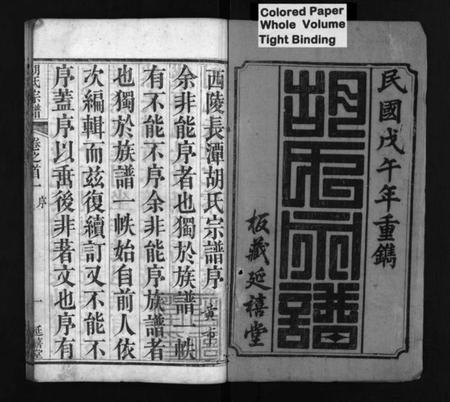 Colored Paper
Whole Volume
Tight Binding
民國戊午年重鐫
胡氏宗譜
板藏延禧堂
西陵長潭胡氏宗譜序
余非能序者也獨於族譜一帙
有不能不序余非能序族譜者
也獨於族譜一帙始自前人依
次編輯而玆復續訂又不能不
序蓋序以垂後非著文也序有
胡氏宗譜
卷之首
序
一
延禧堂